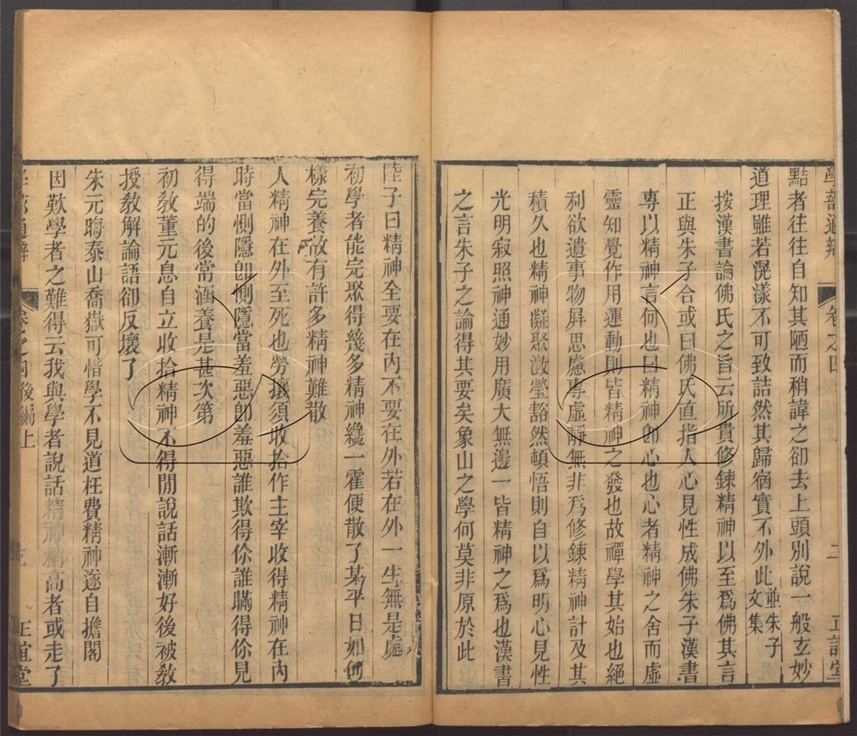 學蔀通辨
卷之四
二
正誼堂
點者往往自知其陋而稍諱之卻去上頭別說一般玄妙
道理雖若滉漾不可致詰然其歸宿實不外此並朱子文集
按漢書論佛氏之旨云所貴修鍊精神以至為佛其言
正與朱子合或曰佛氏直指人心見性成佛朱子漢書
專以精神言何也曰精神卽心也心者精神之舍而虛
靈知覺作用運動則皆精神之發也故禪學其始也絕
利欲遺事物屏思慮專虛靜無非爲修鍊精神計及其
積久也精神凝聚澂瑩豁然頓悟則自以爲明心見性
光明寂照神通妙用廣大無邊一皆精神之爲也漢書
之言朱子之論得其要矣象山之學何莫非原於此
陸子曰精神全要在內不要在外若在外一生無是處
初學者能完聚得幾多精神纔一霍便散了某平日如何
樣完養故有許多精神難散
人精神在外至死也勞攘須收拾作主宰收得精神在內
時當惻隱卽惻隱當羞惡卽羞惡誰欺得你誰瞞得你見
得端的後常涵養是甚次第
初教董元息自立收拾精神不得閒說話漸漸好後被敎
授敎解論語卻反壞了
朱元晦泰山喬嶽可惜學不見道枉費精神遂自擔閣
因歎學者之難得云我與學者說話精神稍高者或走了
學蔀通辨
卷之四後編上
正誼堂